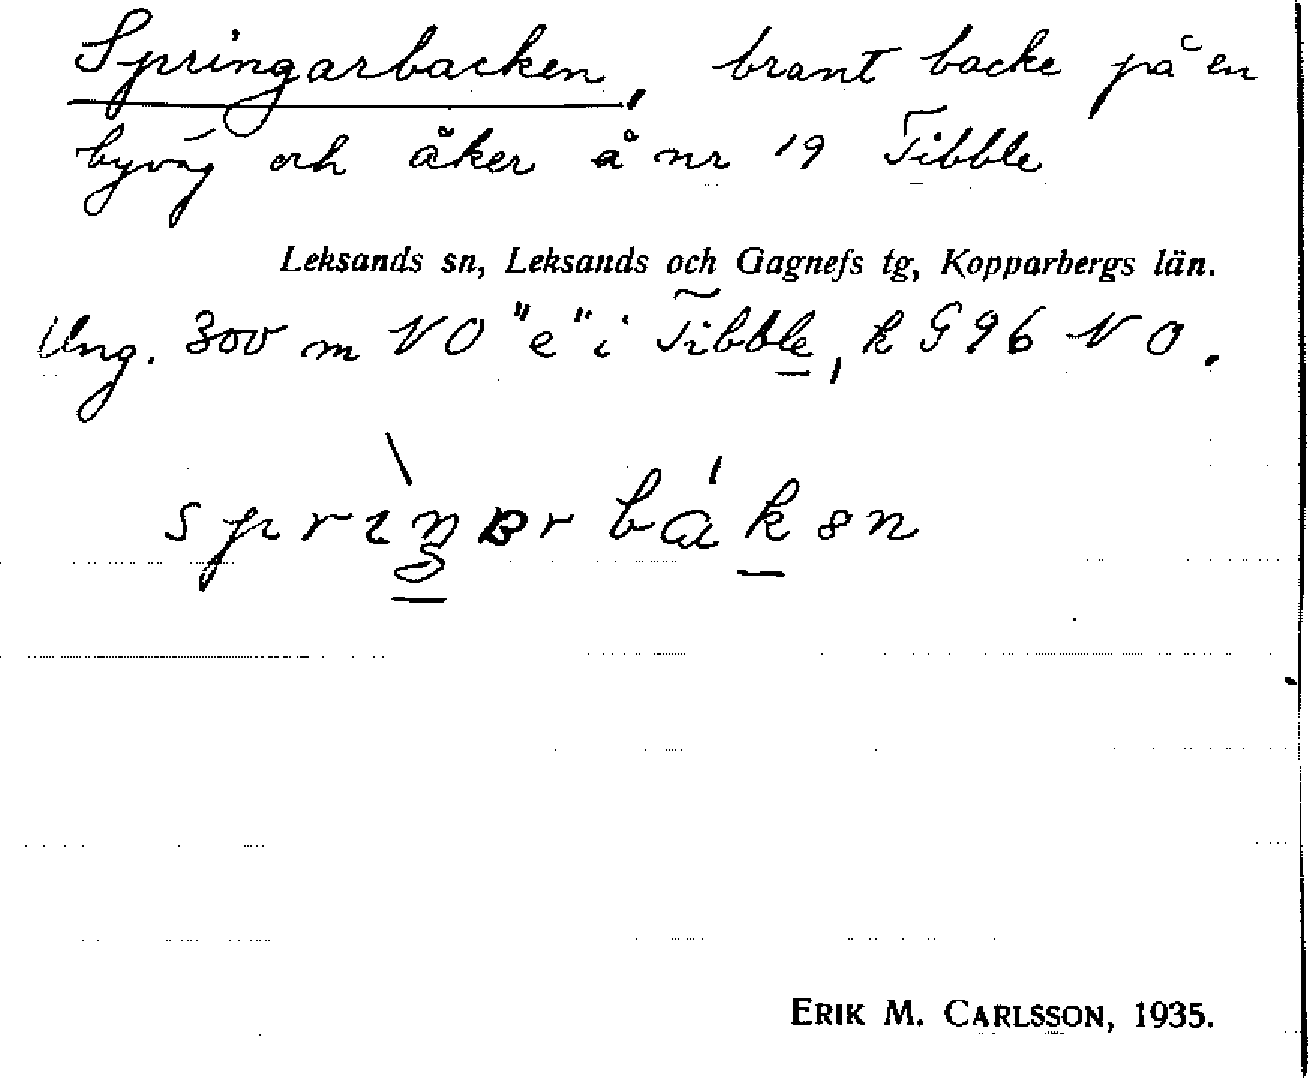 Springarbacken, brant backe på en
byväg och åker å nr 19 Tibble
Leksands sn, Leksands och Gagnefs tg, Kopparbergs län.
Ung. 300 m NO "e" i Tibble, k G 96 NO.
ERIK M. CARLSSON, 1935.